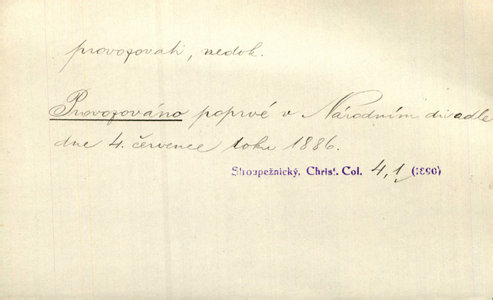 provozovati, nedok.
Provozováno poprvé v Národním divadle
dne 4. července roku 1886.
Stroupežnický, Christ. Col. 4,1 (1890)